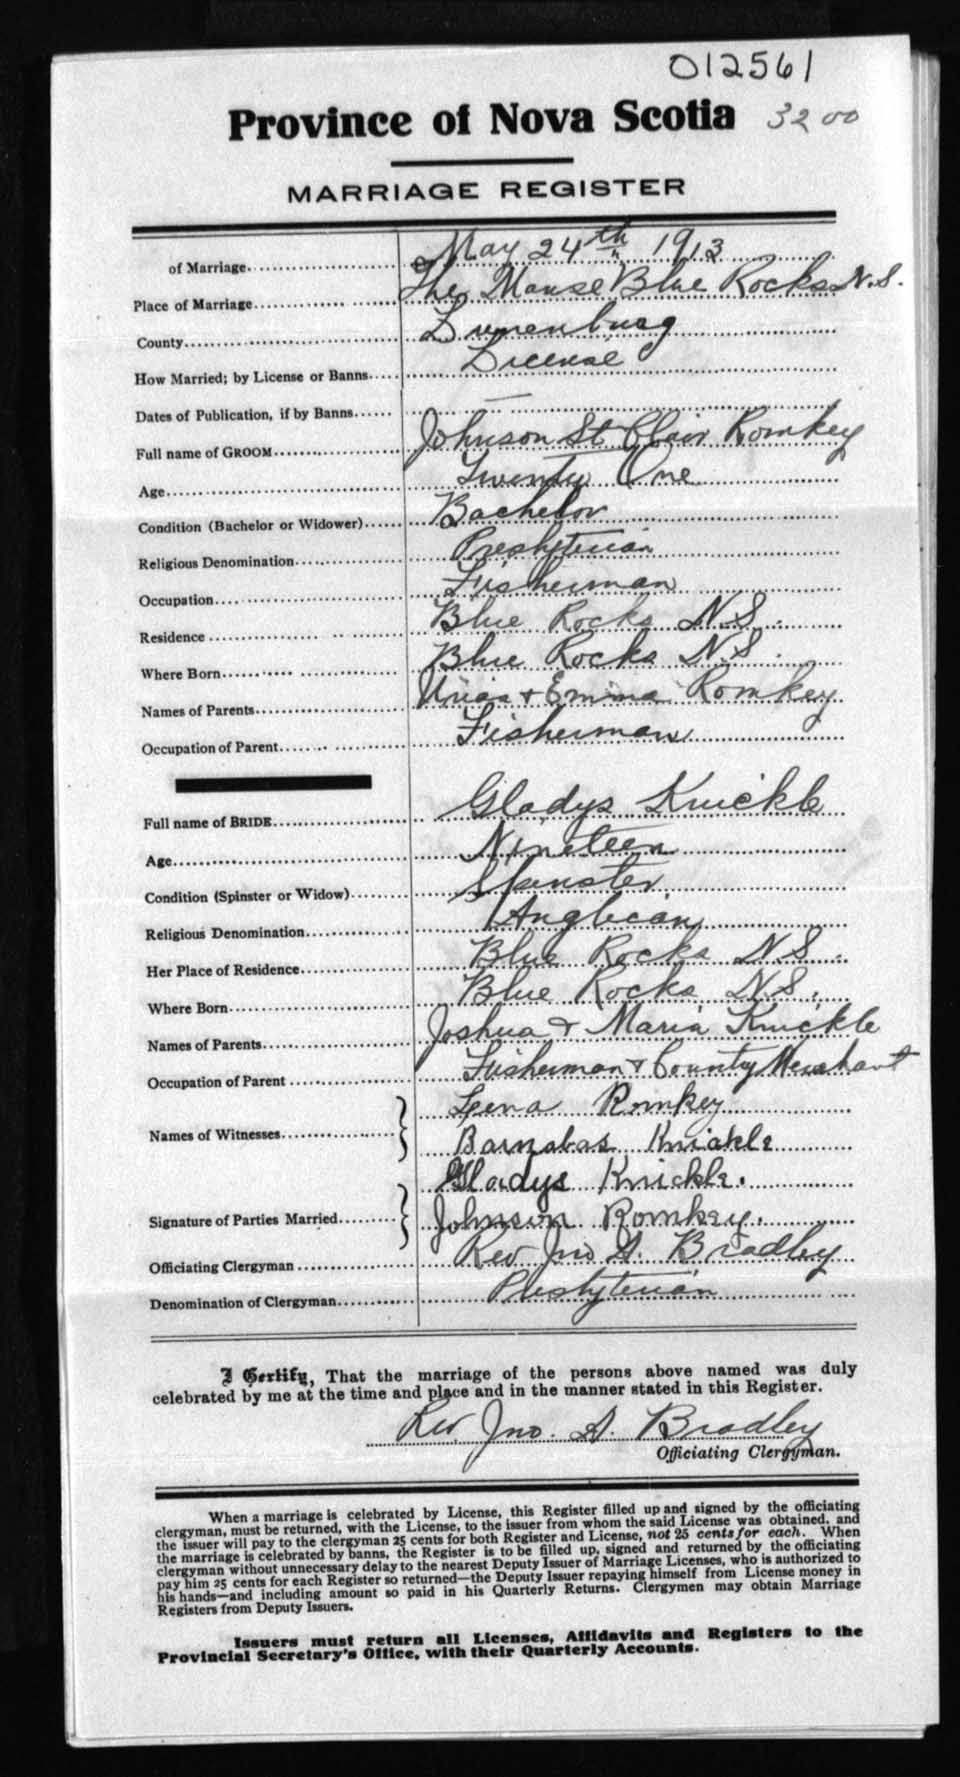 012561
Province of Nova Scotia 3200
MARRIAGE REGISTER
of Marriage May 24th 1913
Place of Marriage The Manse Blue Rocks N.S.
County Lunenburg
How Married; by License or Banns License
Dates of Publication, if by Banns —
Full name of GROOM Johnson St Clair Romkey
Age Twenty One
Condition (Bachelor or Widower) Bachelor
Religious Denomination Presbyterian
Occupation Fisherman
Residence Blue Rocks N.S.
Where Born Blue Rocks N.S.
Names of Parents Urias + Emma Romkey
Occupation of Parent Fisherman
Full name of BRIDE Gladys Knickle
Age Nineteen
Condition (Spinster or Widow) Spinster
Religious Denomination Anglican
Her Place of Residence Blue Rocks N.S.
Where Born Blue Rocks N.S.
Names of Parents Joshua + Maria Knickle
Occupation of Parent Fisherman + Country Merchant
Lena Romkey
Names of Witnesses
Barnabas Knickle
Gladys Knickle.
Signature of Parties Married Johnson Romkey.
Officiating Clergyman Rev Jno A. Bradley
Denomination of Clergyman Presbyterian
I Certify, That the marriage of the persons above named was duly
celebrated by me at the time and place and in the manner stated in this Register.
Rev. Jno. A. Bradley
Officiating Clergyman.
When a marriage is celebrated by License, this Register filled up and signed by the officiating
clergyman, must be returned, with the License, to the issuer from whom the said License was obtained, and
the issuer will pay to the clergyman 25 cents for both Register and License, not 25 cents for each. When
the marriage is celebrated by banns, the Register is to be filled up, signed and returned by the officiating
clergyman without unnecessary delay to the nearest Deputy Issuer of Marriage Licenses, who is authorized to
pay him 25 cents for each Register so returned—the Deputy Issuer repaying himself from License money in
his hands—and including amount so paid in his Quarterly Returns. Clergymen may obtain Marriage
Registers from Deputy Issuers.
Issuers must return all Licenses, Affidavits and Registers to the
Provincial Secretary's Office, with their Quarterly Accounts.